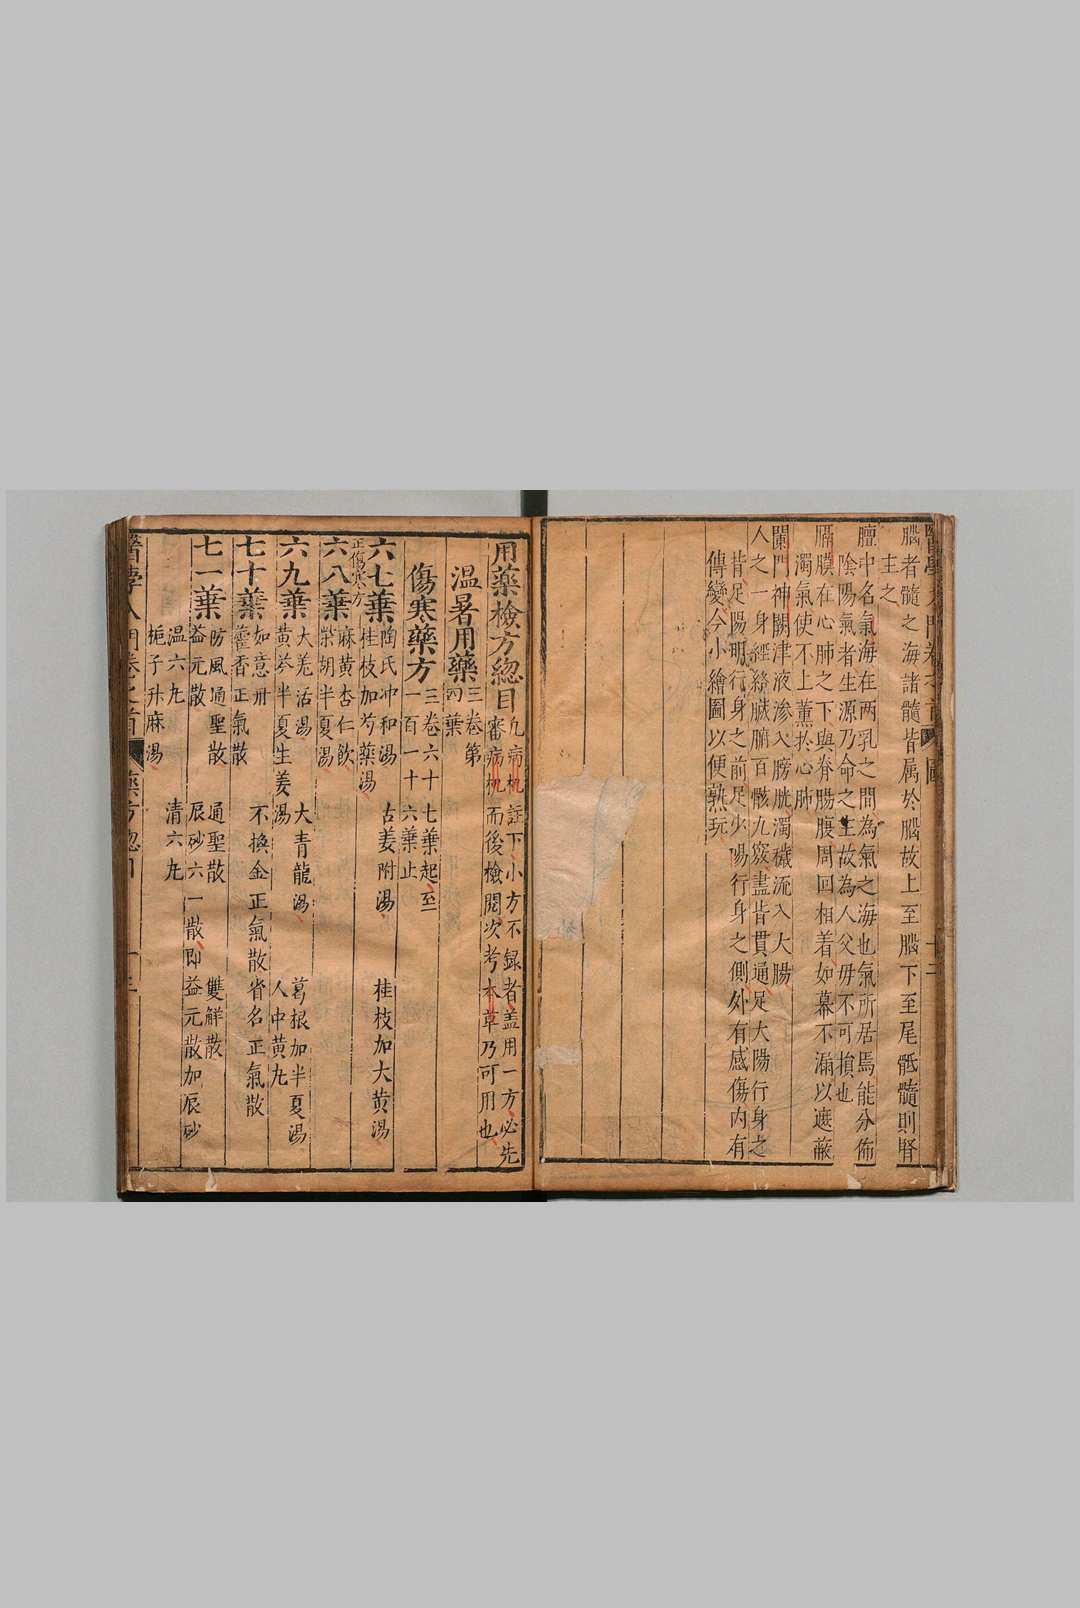 腦者髓之海諸髓皆属於腦故上至腦下至尾骶髓則腎
主之
膻中名氣海在两乳之間為氣之海也氣所居焉能分佈
陰陽氣者生源乃命之主故為人父母不可損也
膈膜在心肺之下與脊腸腹周回相着如幕不漏以遮蔽
濁氣使不上薰於心肺
闌門神闕津液滲入膀胱濁穢流入大腸
人之一身經絡臓腑百骸九竅盡皆貫通足大陽行身之
背足陽明行身之前足少陽行身之側外有感傷内有
傳變今小繪圖以便熟玩
用藥檢方総目
凢病机註下小方不録者盖用一方必先
審病机而後檢閱次考本草乃可用也
温暑用藥
三卷第
四葉
傷寒藥方
三卷六十七葉起至
一百一十六葉止
六七葉
陶氏冲和湯 古姜附湯 桂枝加大黄湯
桂枝加芍藥湯
正傷寒方
六八葉
麻黄杏仁飲
柴胡半夏湯
六九葉
大羌活湯 大青龍湯 葛根加半夏湯
黄芩半夏生姜湯 人中黄九
七十葉
如意册 不換金正氣散 省名正氣散
藿香正氣散
七一葉
防風通聖散 通聖散 雙解散
益元散 辰砂六一散即益元散加辰砂
温六九 清六九
梔子升麻湯
醫學入門卷之首
藥方総目
十三